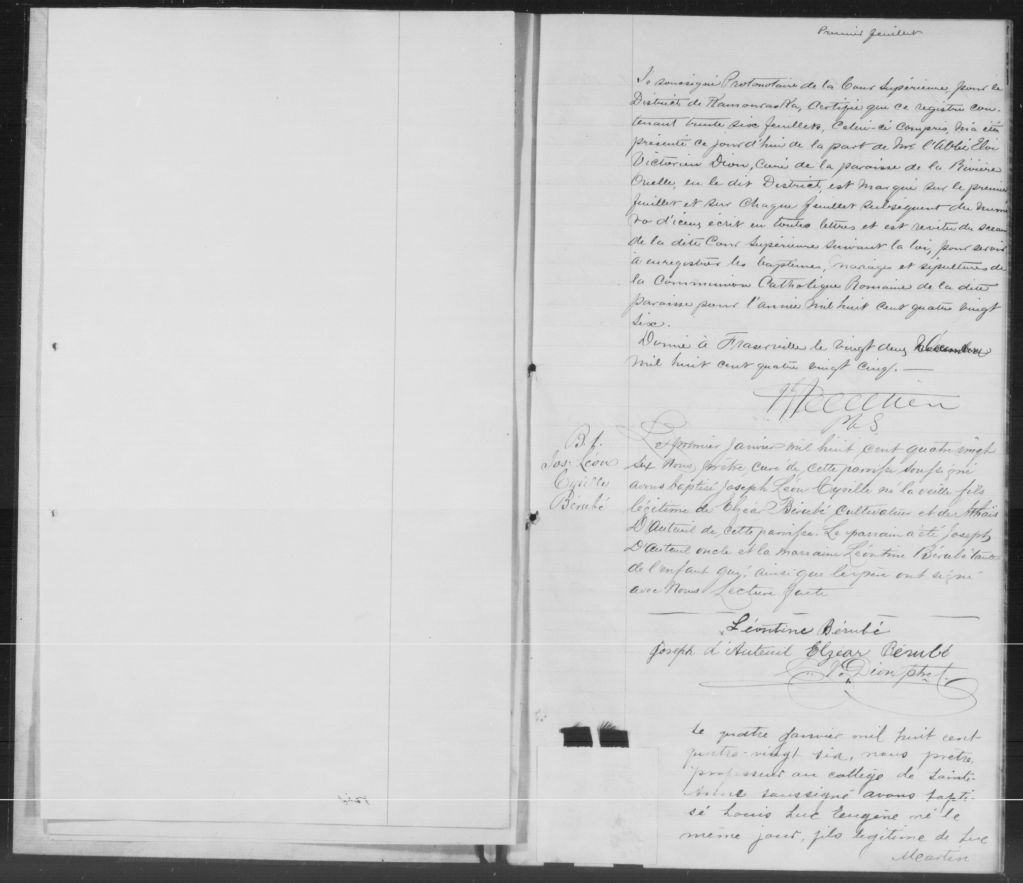 Premier feuillet
Je soussigné Protonotaire de la Cour Supérieure, pour le
District de Kamouraska, Certifie que ce registre con-
tenant trente six feuillets, Celui-ci Compris, m'a été
présenté ce jourd'hui de la part de Mr. l'Abbé Eloi
Victorien Dion, Curé de la paroisse de la Rivière
Ouelle, en le dit District, est Marqué sur le premier
feuillet et sur Chaque feuillet subséquent du numé
ro d'iceux écrit en toutes lettres et est revêtu du sceau
de la dite Cour Supérieure suivant la loi, pour servir
à enregistrer les baptêmes, mariages et sépultures de
la Communion Catholique Romaine de la dite
paroisse pour l'année mil huit cent quatre vingt
six.
Donné à Fraserville le vingt deux décembre
mil huit cent quatre vingt cinq. —
B. 1.
Jos. Léon
Cyrille
Bérubé
Le premier Janvier mil huit cent quatre vingt
six Nous prêtre curé de cette paroisse soussigné
avons baptisé Joseph Léon Cyrille né la veille fils
légitime de Elzéar Bérubé Cultivateur et de
D'Auteuil de cette paroisse. Le parrain a été Joseph
D'Auteuil oncle et la marraine Léontine Bérubé tante
de l'enfant qui, ainsi que le père ont signé
avec Nous. Lecture faite
Léontine Bérubé
Joseph d'Auteuil Elzear Bérubé
Dion ptre
Le quatre Janvier mil huit cent
quatre-vingt six, nous prêtre,
professeur au collège de Sainte-
Anne soussigné avons bapti-
sé Louis Luc Eugène né le
même jour, fils légitime de Luc
Martin